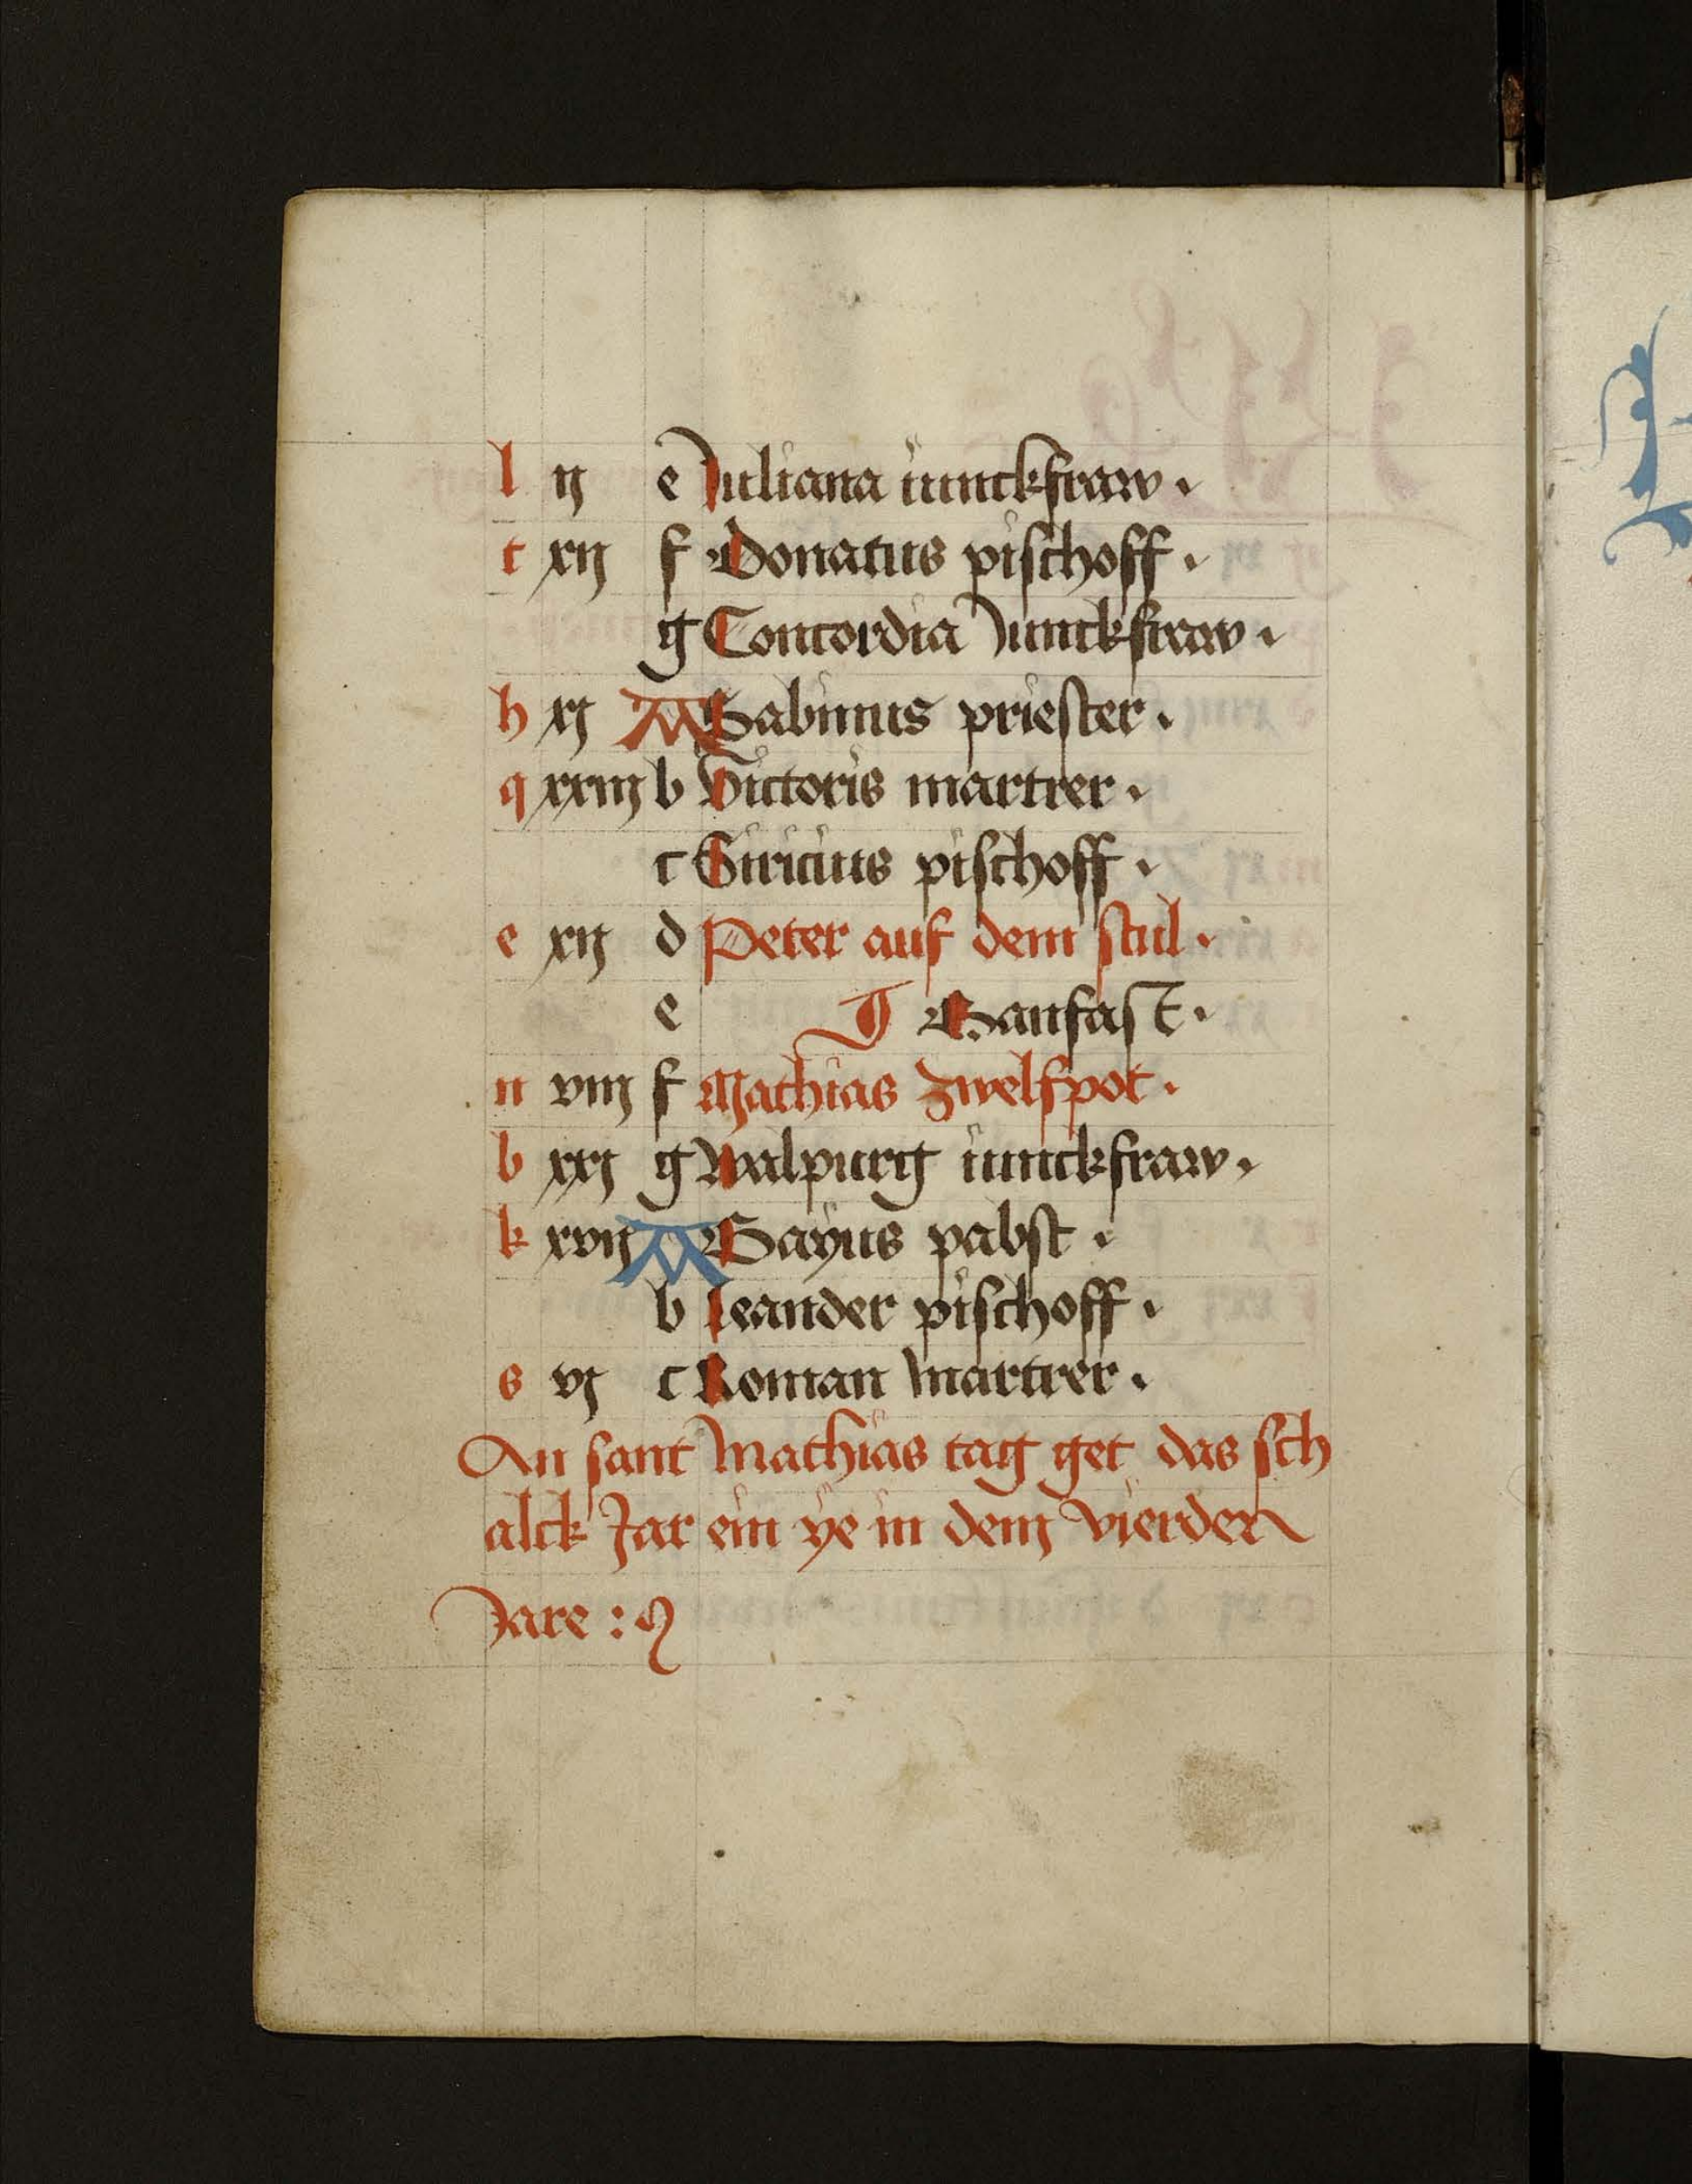 l ij e Juliana iunckfraw .
t xij f Donatus pischoff .
g Concordia Junckfraw .
h xj A Sabinus priester .
q xxiij b Victoris martrer .
c Siricius pischoff .
e xij d Peter auf dem stul .
e Banfast .
n viij f Mathias zwelfpot .
b xxj g Walpurg iunckfraw .
k xvij A Gayus pabst .
b Leander pischoff .
s vj c Roman martrer .
An sant Mathias tag get das sch
alck Jar ein ye in dem vierden
Jare :